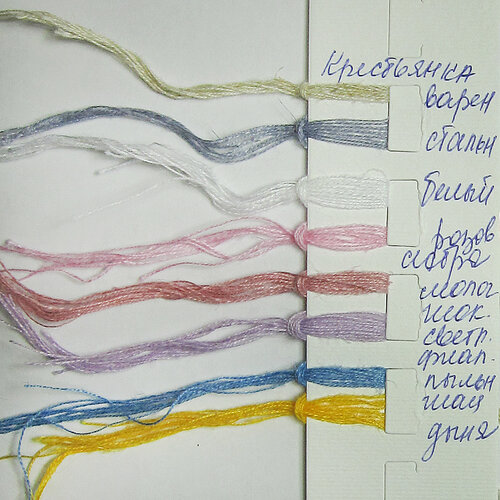 Крестьянка
варен
стальн
белый
розов
молоч
шок.
светл.
фиал.
пыльн
дыня